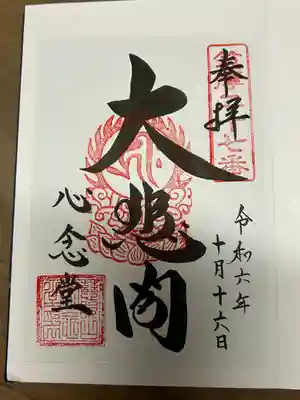 奉拝
大悲閣
心念堂
令和六年
十月十六日